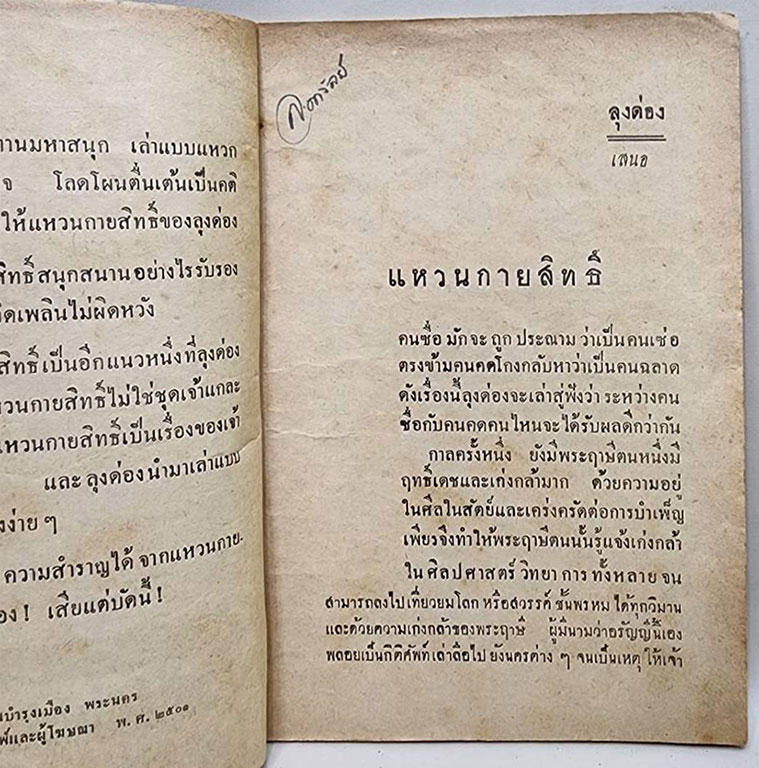 านมหาสนุก เล่าแบบแหวก
จ โลดโผนตื่นเต้นเป็นคติ
ให้แหวนกายสิทธิ์ของลุงด่อง
สิทธิ์สนุกสนานอย่างไรรับรอง
ดเพลินไม่ผิดหวัง
สิทธิ์เป็นอีกแนวหนึ่งที่ลุงด่อง
หวนกายสิทธิ์ไม่ใช่ชุดเจ้าแกละ
หวนกายสิทธิ์เป็นเรื่องของเจ้า
และลุงด่องนำมาเล่าแบบ
งง่าย ๆ
ความสำราญได้ จากแหวนกาย-
อง! เสียแต่บัดนี้!
บำรุงเมือง พระนคร
พ์และผู้โฆษณา พ.ศ. ๒๕๐๑
ลุงด่อง
เสนอ
แหวนกายสิทธิ์
คนซื่อ มักจะ ถูก ประณาม ว่าเป็นคนเซ่อ
ตรงข้ามคนคดโกงกลับหาว่าเป็นคนฉลาด
ดังเรื่องนี้ลุงด่องจะเล่าสู่ฟังว่า ระหว่างคน
ซื่อกับคนคดคนไหนจะได้รับผลดีกว่ากัน
กาลครั้งหนึ่ง ยังมีพระฤาษีตนหนึ่งมี
ฤทธิ์เดชและเก่งกล้ามาก ด้วยความอยู่
ในศีลในสัตย์และเคร่งครัดต่อการบำเพ็ญ
เพียรจึงทำให้พระฤาษีตนนั้นรู้แจ้งเก่งกล้า
ใน ศิลปศาสตร์ วิทยา การ ทั้งหลาย จน
สามารถลงไปเที่ยวยมโลก หรือสวรรค์ ชั้นพรหม ได้ทุกวิมาน
และด้วยความเก่งกล้าของพระฤาษี ผู้มีนามว่าอรัญญีนี้เอง
พลอยเป็นกิติศัพท์เล่าลือไป ยังนครต่าง ๆ จนเป็นเหตุ ให้เจ้า